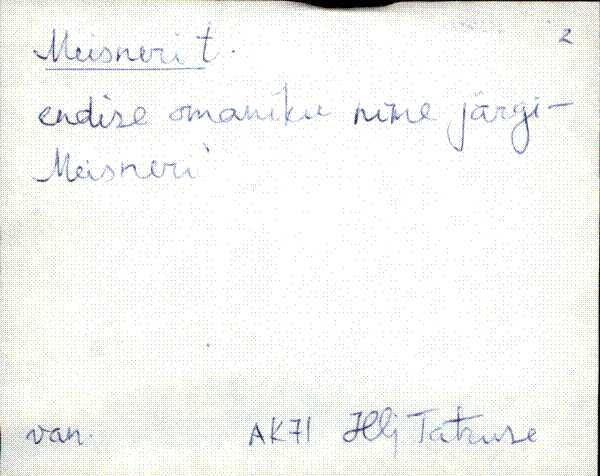 Meisneri t. 2
endise omaniku nime järgi –
Meisneri
van. AK71 Hlj Tatruse